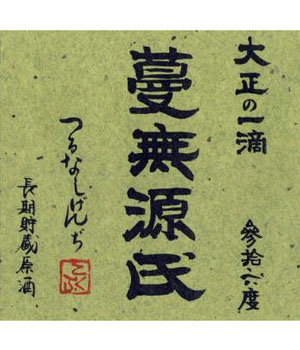 大正の一滴
参拾六度
蔓無源氏
つるなしげんぢ
長期貯蔵原酒